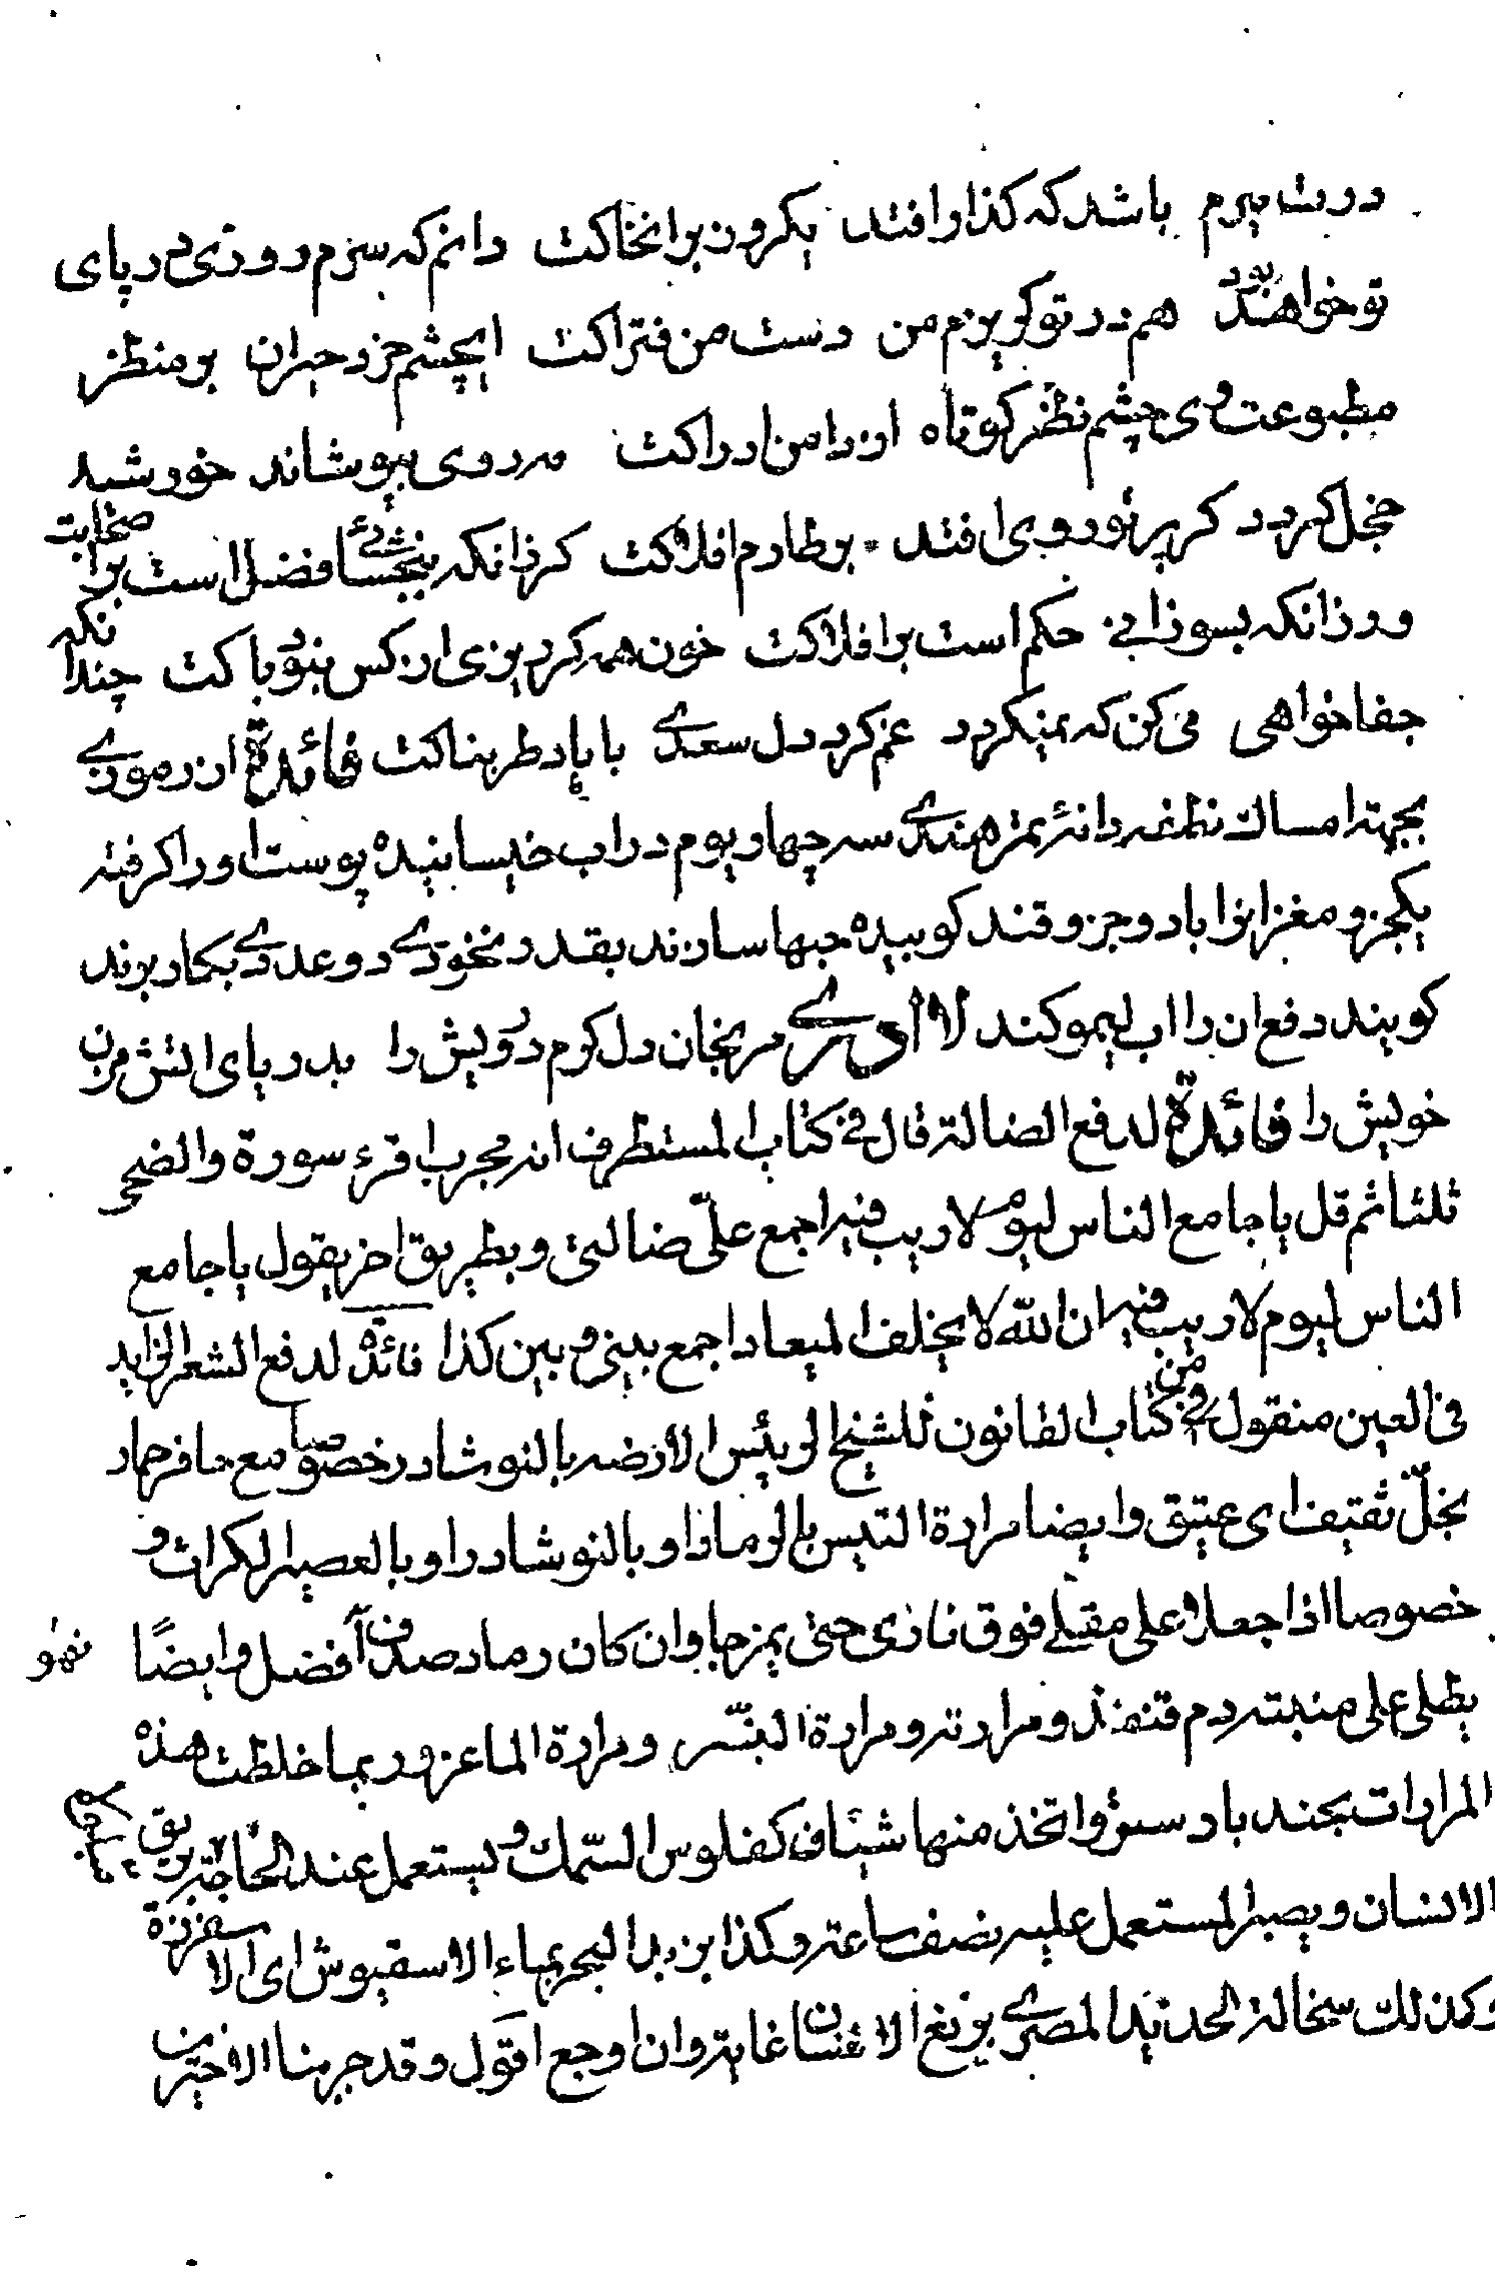 درت میرم باشد که کذارافتد یکروز برانخاکت دانم که سزم روزی در پای
تو خواهد بود هم در تو کریزم من دست من فتراکت ایچشم خرد حیران بر منظر
مطبوعت وی چشم نظر کوتاه از دامن ادراکت مه روی بپوشاند خورشید
خجل کردد کر پرتو روی افتد بر طارم افلاکت کر زانکه ببخشائی فضل است بر اصحابت
ورزانکه بسوزانی حکم است بر افلاکت خون همه کر بریزی از کس نبود باکت چندانکه
جفا خواهی می کن که نمیکردد غم کرد دل سعدی با یاد طربناکت فائدة از رموزی
بجهة امساک نطفه دانه تمر هندی سه چهار یوم در اب خیسانیده پوست او را کرفته
یکجزو مغز انرا با دو جزو قند کوبیده حبها سازند بقدر نخودی دو عددی بکار برند
کویند دفع ان را اب لیمو کند لا ادری مرنجان دل کرم درویش را بدریای اتش مزن
خویش را فائدة لدفع الضالة قال فی کتاب المستطرف انه مجرب اقرء سورة والضحی
ثلثا ثم قل یا جامع الناس لیوم لا ریب فیه اجمع علیّ ضالتی و بطریق اخر یقول یا جامع
الناس لیوم لا ریب فیه ان الله لا یخلف المیعاد اجمع بینی و بین کذا فائدة لدفع الشعر الزاید
فی العین منقول من کتاب القانون للشیخ الرئیس الارضه بالنوشادر خصوصا مع حافر حمار
بخلّ ثقیف ای عتیق وایضا مرارة التیس بالرماد او بالنوشادر او بالعصیر الکراث و
خصوصا اذا جعلا علی مقلی فوق نار حتی یمزجا وان کان رماد صدف افضل وایضًا
یطلی علی منبته دم قنفذ و مرارته و مرارة النسر و مرارة الماعز و ربما خلطت هذه
المرارات بجند بادستر واتخذ منها شیاف کفلوس السّمک و یستعمل عند الحاجة بریق
الانسان و یصبر المستعمل علیه نصف ساعة و کذا زبد البحر بماء الاسقیوش ای الاسفرزة
وکذلک سحالة الحدید المصری بریق الانسان غایة وان اوجع اقول وقد جربنا الاخیرین